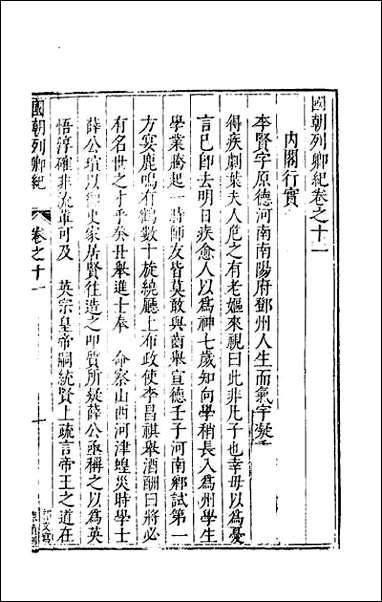 國朝列卿紀卷之十一
內閣行實
李賢字原德河南南陽府鄧州人生而氣宇凝
得疾劇葉夫人危之有老嫗來視曰此非凡子也幸毋以為憂
言已卽去明日疾愈人以為神七歲知向學稍長入為州學生
學業騰起一時師友皆莫敢與齒舉宣德壬子河南鄉試第一
方宴鹿鳴有鶴數十旋繞廳上布政使李昌祺舉酒酬曰將必
有名世之才乎癸丑舉進士奉 命察山西河津蝗災時學士
薛公瑄以御史家居賢往造之叩質所疑薛公亟稱之以為英
悟淳確非流輩可及 英宗皇帝嗣統賢上疏言帝王之道在
國朝列卿紀 卷之十一 一